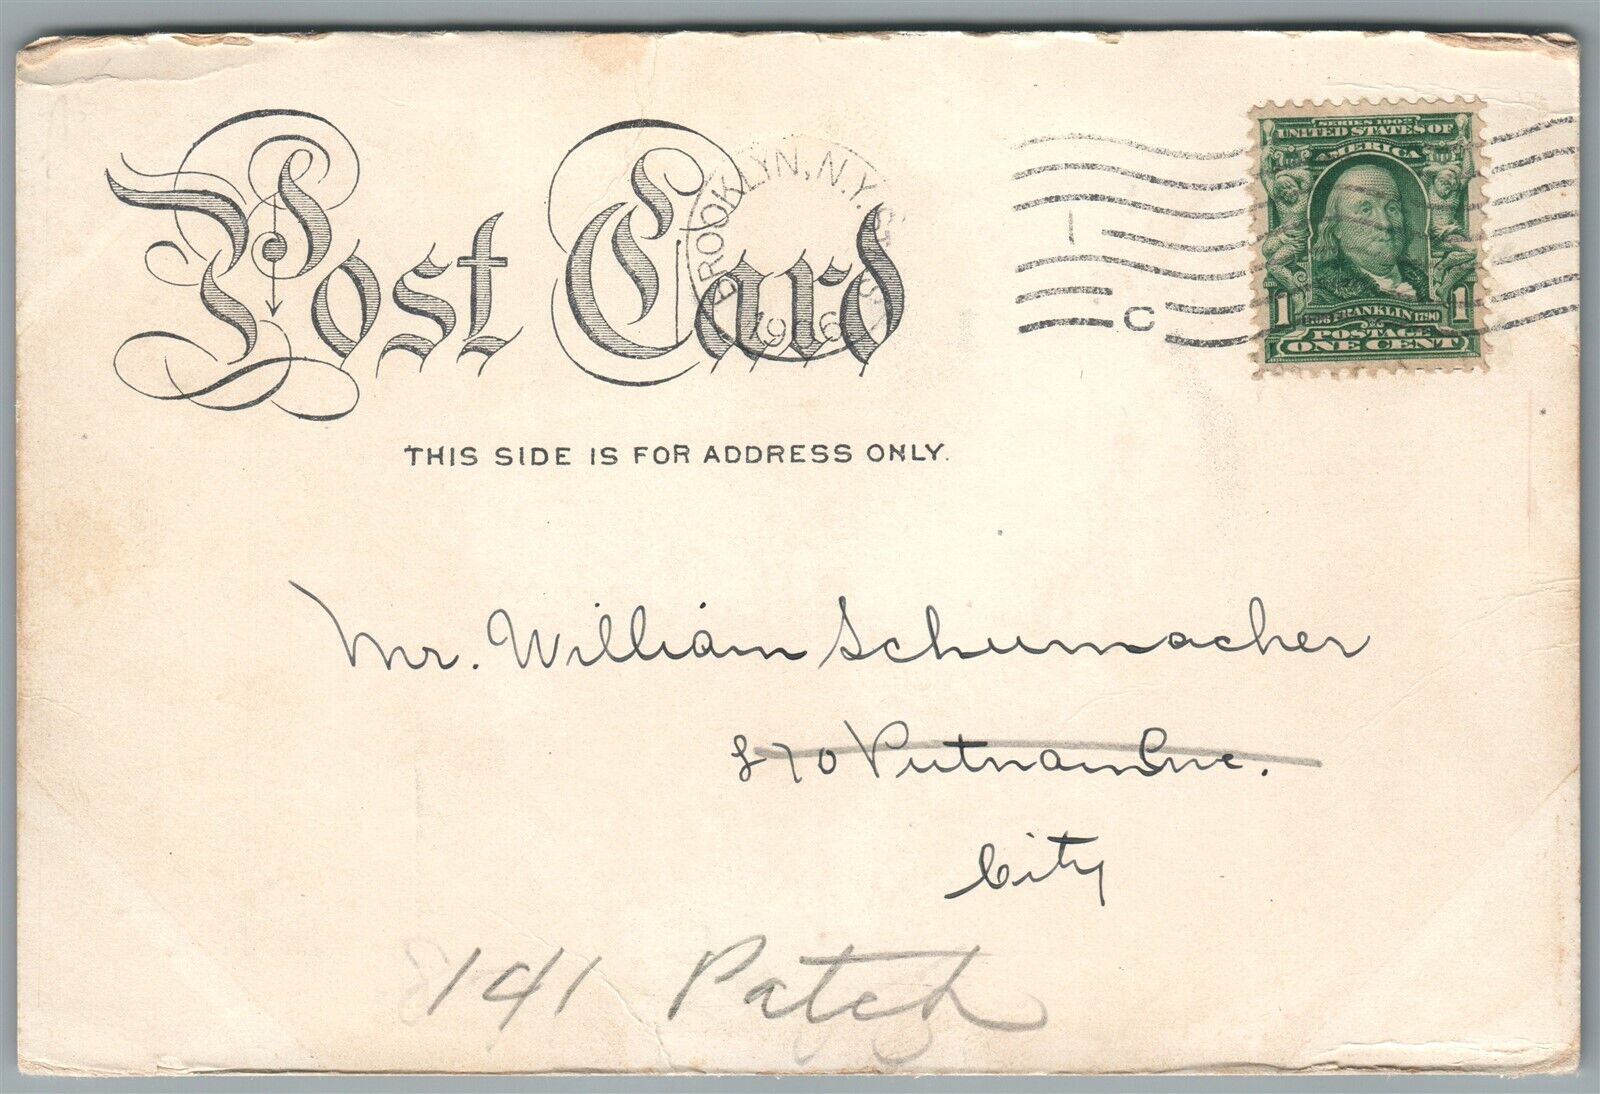 Post Card
BROOKLYN, N.Y.
1906
C
SERIES 1902
UNITED STATES OF
AMERICA
1 1706 FRANKLIN 1790 1
POSTAGE
ONE CENT
THIS SIDE IS FOR ADDRESS ONLY.
Mr. William Schumacher
870 Putnam Ave.
City
141 Patch